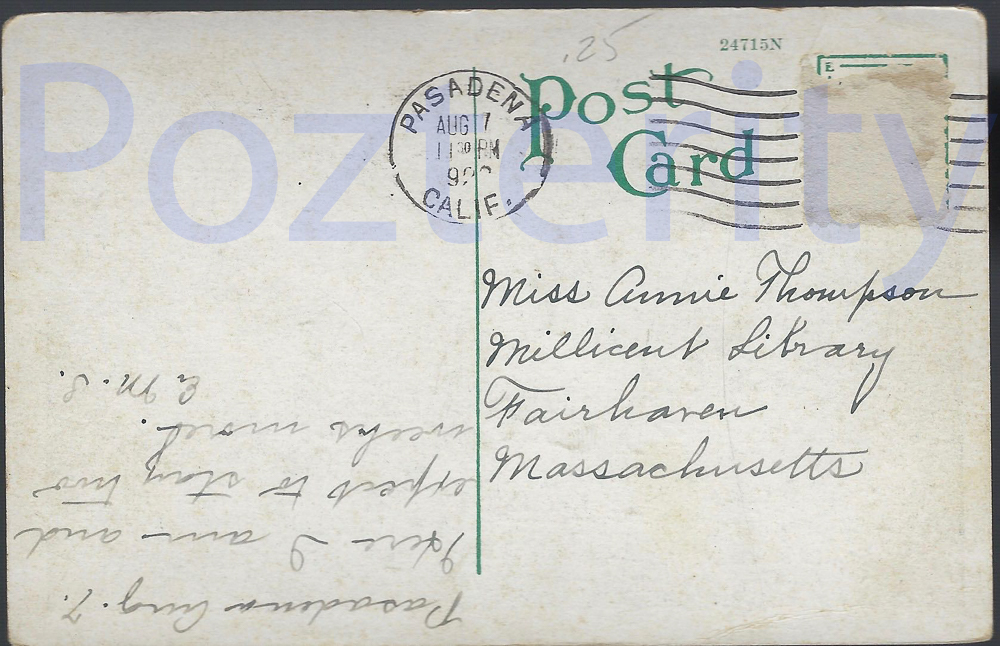 Pozterity
.25
24715N
Post
Card
PASADENA
AUG 7
11 30 PM
CALIF.
Miss Annie Thompson
Millicent Library
Fairhaven
Massachusetts
Pasadena Aug. 7.
Here I am and
expect to stay two
weeks more.
E. M. S.